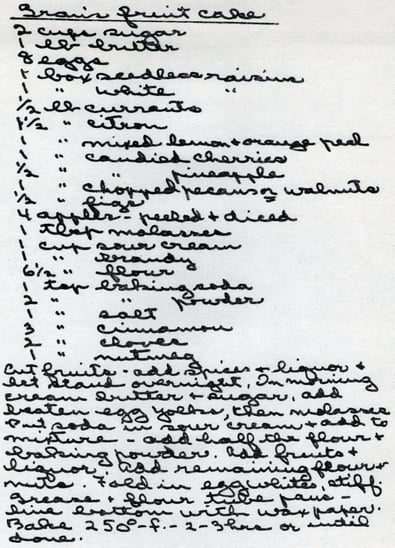 Fran's fruit cake
2 cups sugar
1 lb butter
8 eggs
1 box seedless raisins
1 " white "
1/2 lb currants
1 1/2 " citron
1 " mixed lemon + orange peel
1 " candied cherries
1/2 " " pineapple
1 " chopped pecans or walnuts
1/2 " figs
4 apples - peeled + diced
1 tbsp molasses
1 cup sour cream
1 " brandy
6 1/2 " flour
1 tsp baking soda
2 " " powder
1 " salt
3 " cinnamon
2 " cloves
1 " nutmeg
Cut fruits - add spices + liquor +
let stand overnight. In morning
cream butter + sugar, add
beaten egg yolks, then molasses
Put soda in sour cream + add to
mixture - add half the flour +
baking powder. Add fruits +
liquor. Add remaining flour +
nuts. Fold in egg whites, stiff.
Grease + flour tube pans -
line bottom with wax paper.
Bake 250°-f. - 2-3 hrs or until
done.